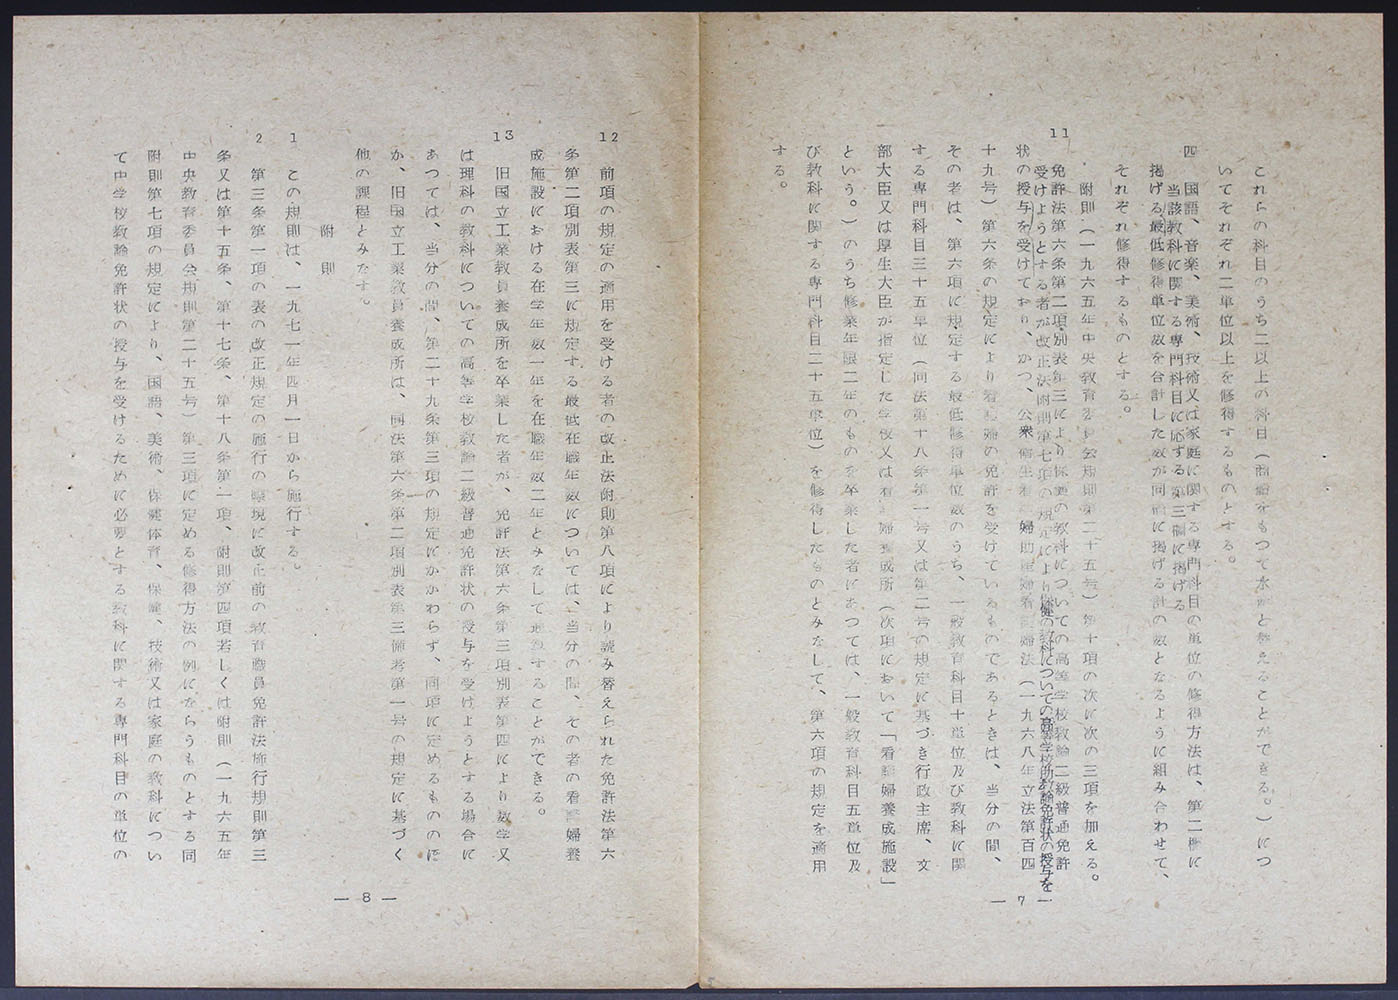 これらの科目のうち二以上の科目（商船をもつて水産と替えることができる。）につ
いてそれぞれ二単位以上を修得するものとする。
四　国語、音楽、美術、技術又は家庭に関する専門科目の単位の修得方法は、第二欄に
当該教科に関する専門科目に応ずる第三欄に掲げる
掲げる最低修得単位数を合計した数が同欄に掲げる計の数となるように組み合わせて、
それぞれ修得するものとする。
附則（一九六五年中央教育委員会規則第二十五号）第十項の次に次の三項を加える。
11　免許法第六条第二項別表第三により保健の教科についての高等学校教諭二級普通免許
受けようとする者が改正法附則第七項の規定により保健の教科についての高等学校助教諭免許状の授与を
状の授与を受けており、かつ、公衆衛生看護婦助産婦看護婦法（一九六八年立法第百四
十九号）第六条の規定により看護婦の免許を受けているものであるときは、当分の間、
その者は、第六項に規定する最低修得単位数のうち、一般教育科目十単位及び教科に関
する専門科目三十五単位（同法第十八条第一号又は第二号の規定に基づき行政主席、文
部大臣又は厚生大臣が指定した学校又は看護婦養成所（次項において「看護婦養成施設」
という。）のうち修業年限二年のものを卒業した者にあつては、一般教育科目五単位及
び教科に関する専門科目二十五単位）を修得したものとみなして、第六項の規定を適用
する。
— 7 —
12　前項の規定の適用を受ける者の改正法附則第八項により読み替えられた免許法第六
条第二項別表第三に規定する最低在職年数については、当分の間、その者の看護婦養
成施設における在学年数一年を在職年数二年とみなして通算することができる。
13　旧国立工業教員養成所を卒業した者が、免許法第六条第三項別表第四により数学又
は理科の教科についての高等学校教諭二級普通免許状の授与を受けようとする場合に
あつては、当分の間、第二十九条第三項の規定にかかわらず、同項に定めるもののほ
か、旧国立工業教員養成所は、同法第六条第二項別表第三備考第一号の規定に基づく
他の課程とみなす。
附則
1　この規則は、一九七一年四月一日から施行する。
2　第三条第一項の表の改正規定の施行の際現に改正前の教育職員免許法施行規則第三
条又は第十五条、第十七条、第十八条第一項、附則第四項若しくは附則（一九六五年
中央教育委員会規則第二十五号）第三項に定める修得方法の例にならうものとする同
附則第七項の規定により、国語、美術、保健体育、保健、技術又は家庭の教科につい
て中学校教諭免許状の授与を受けるために必要とする教科に関する専門科目の単位の
— 8 —